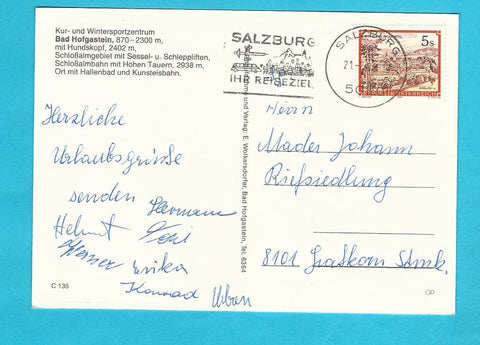 Kur- und Wintersportzentrum
Bad Hofgastein, 870–2300 m,
mit Hundskopf, 2402 m,
Schloßalmgebiet mit Sessel- u. Schleppliften,
Schloßalmbahn mit Hohen Tauern, 2938 m,
Ort mit Hallenbad und Kunsteisbahn.
Herzliche
Urlaubsgrüße
senden Hermann
Helmut
Werner Erika
Konrad Urban
C 135
Verlag: E. Wolkersdorfer, Bad Hofgastein, Tel. 6364
SALZBURG
IHR REISEZIEL
SALZBURG
21.
50
5 s
Herrn
Mader Johann
Riefsiedlung
8101 Gratkorn Stmk.